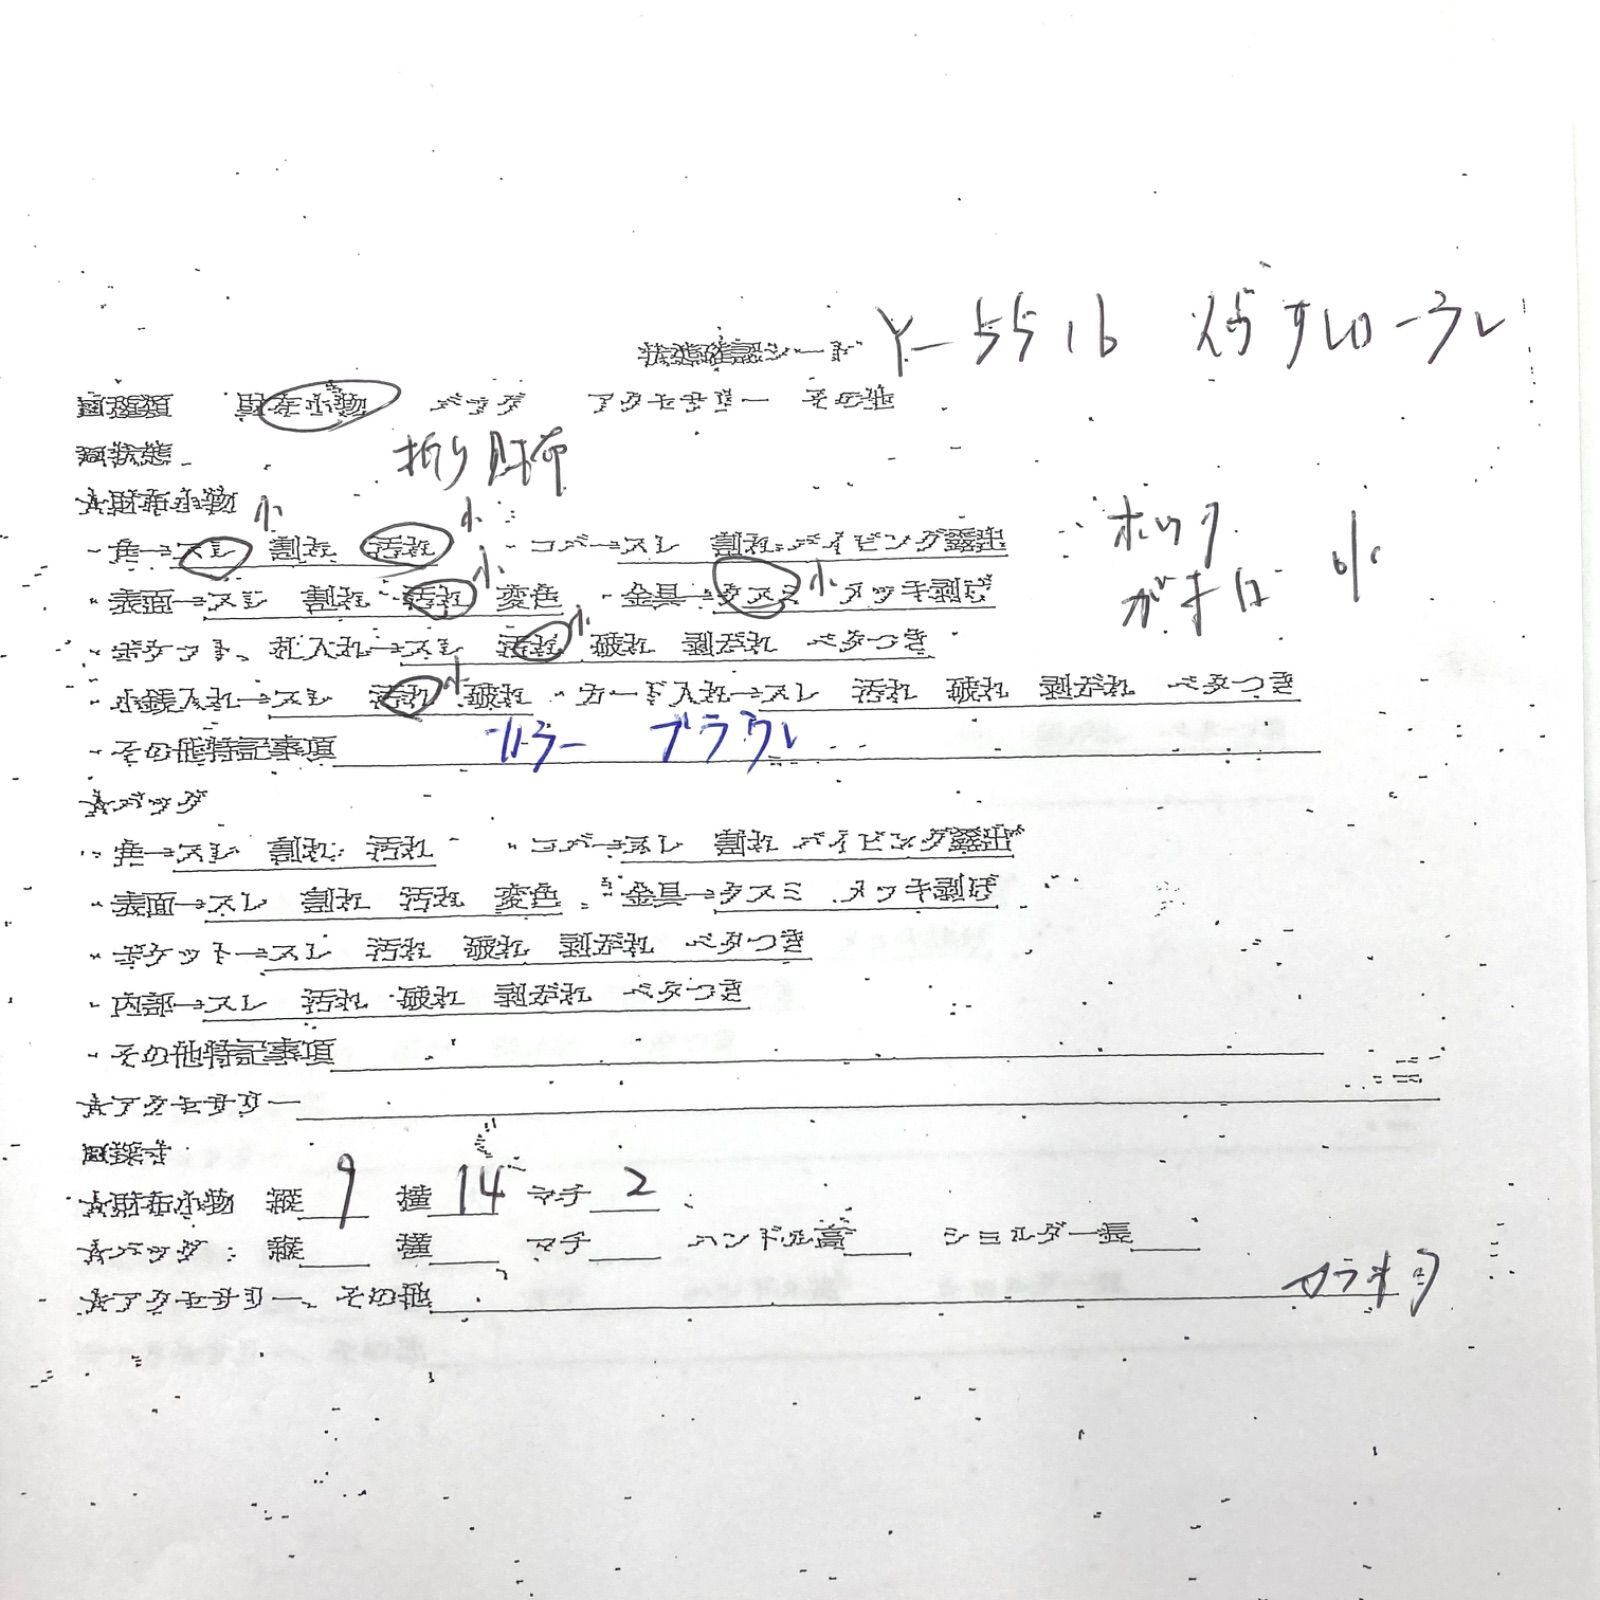 状態確認シート Y-5516
■種類 財布小物 バッグ アクセサリー その他
■状態 折り財布
★財布小物
・角→スレ 小 割れ 汚れ 小 ・コバ→スレ 割れ パイピング露出 ホック
・表面→スレ 割れ 汚れ 小 変色 ・金具→クスミ 小 メッキ剥げ がま口 小
・ポケット、札入れ→スレ 汚れ 小 破れ 剥がれ ベタつき
・小銭入れ→スレ 汚れ 小 破れ ・カード入れ→スレ 汚れ 破れ 剥がれ ベタつき
・その他特記事項 カラー ブラウン
★バッグ
・角→スレ 割れ 汚れ ・コバ→スレ 割れ パイピング露出
・表面→スレ 割れ 汚れ 変色 ・金具→クスミ メッキ剥げ
・ポケット→スレ 汚れ 破れ 剥がれ ベタつき
・内部→スレ 汚れ 破れ 剥がれ ベタつき
・その他特記事項
★アクセサリー
■採寸
★財布小物 縦 9 横 14 マチ 2
★バッグ 縦 横 マチ ハンドル高 ショルダー長
★アクセサリー、その他